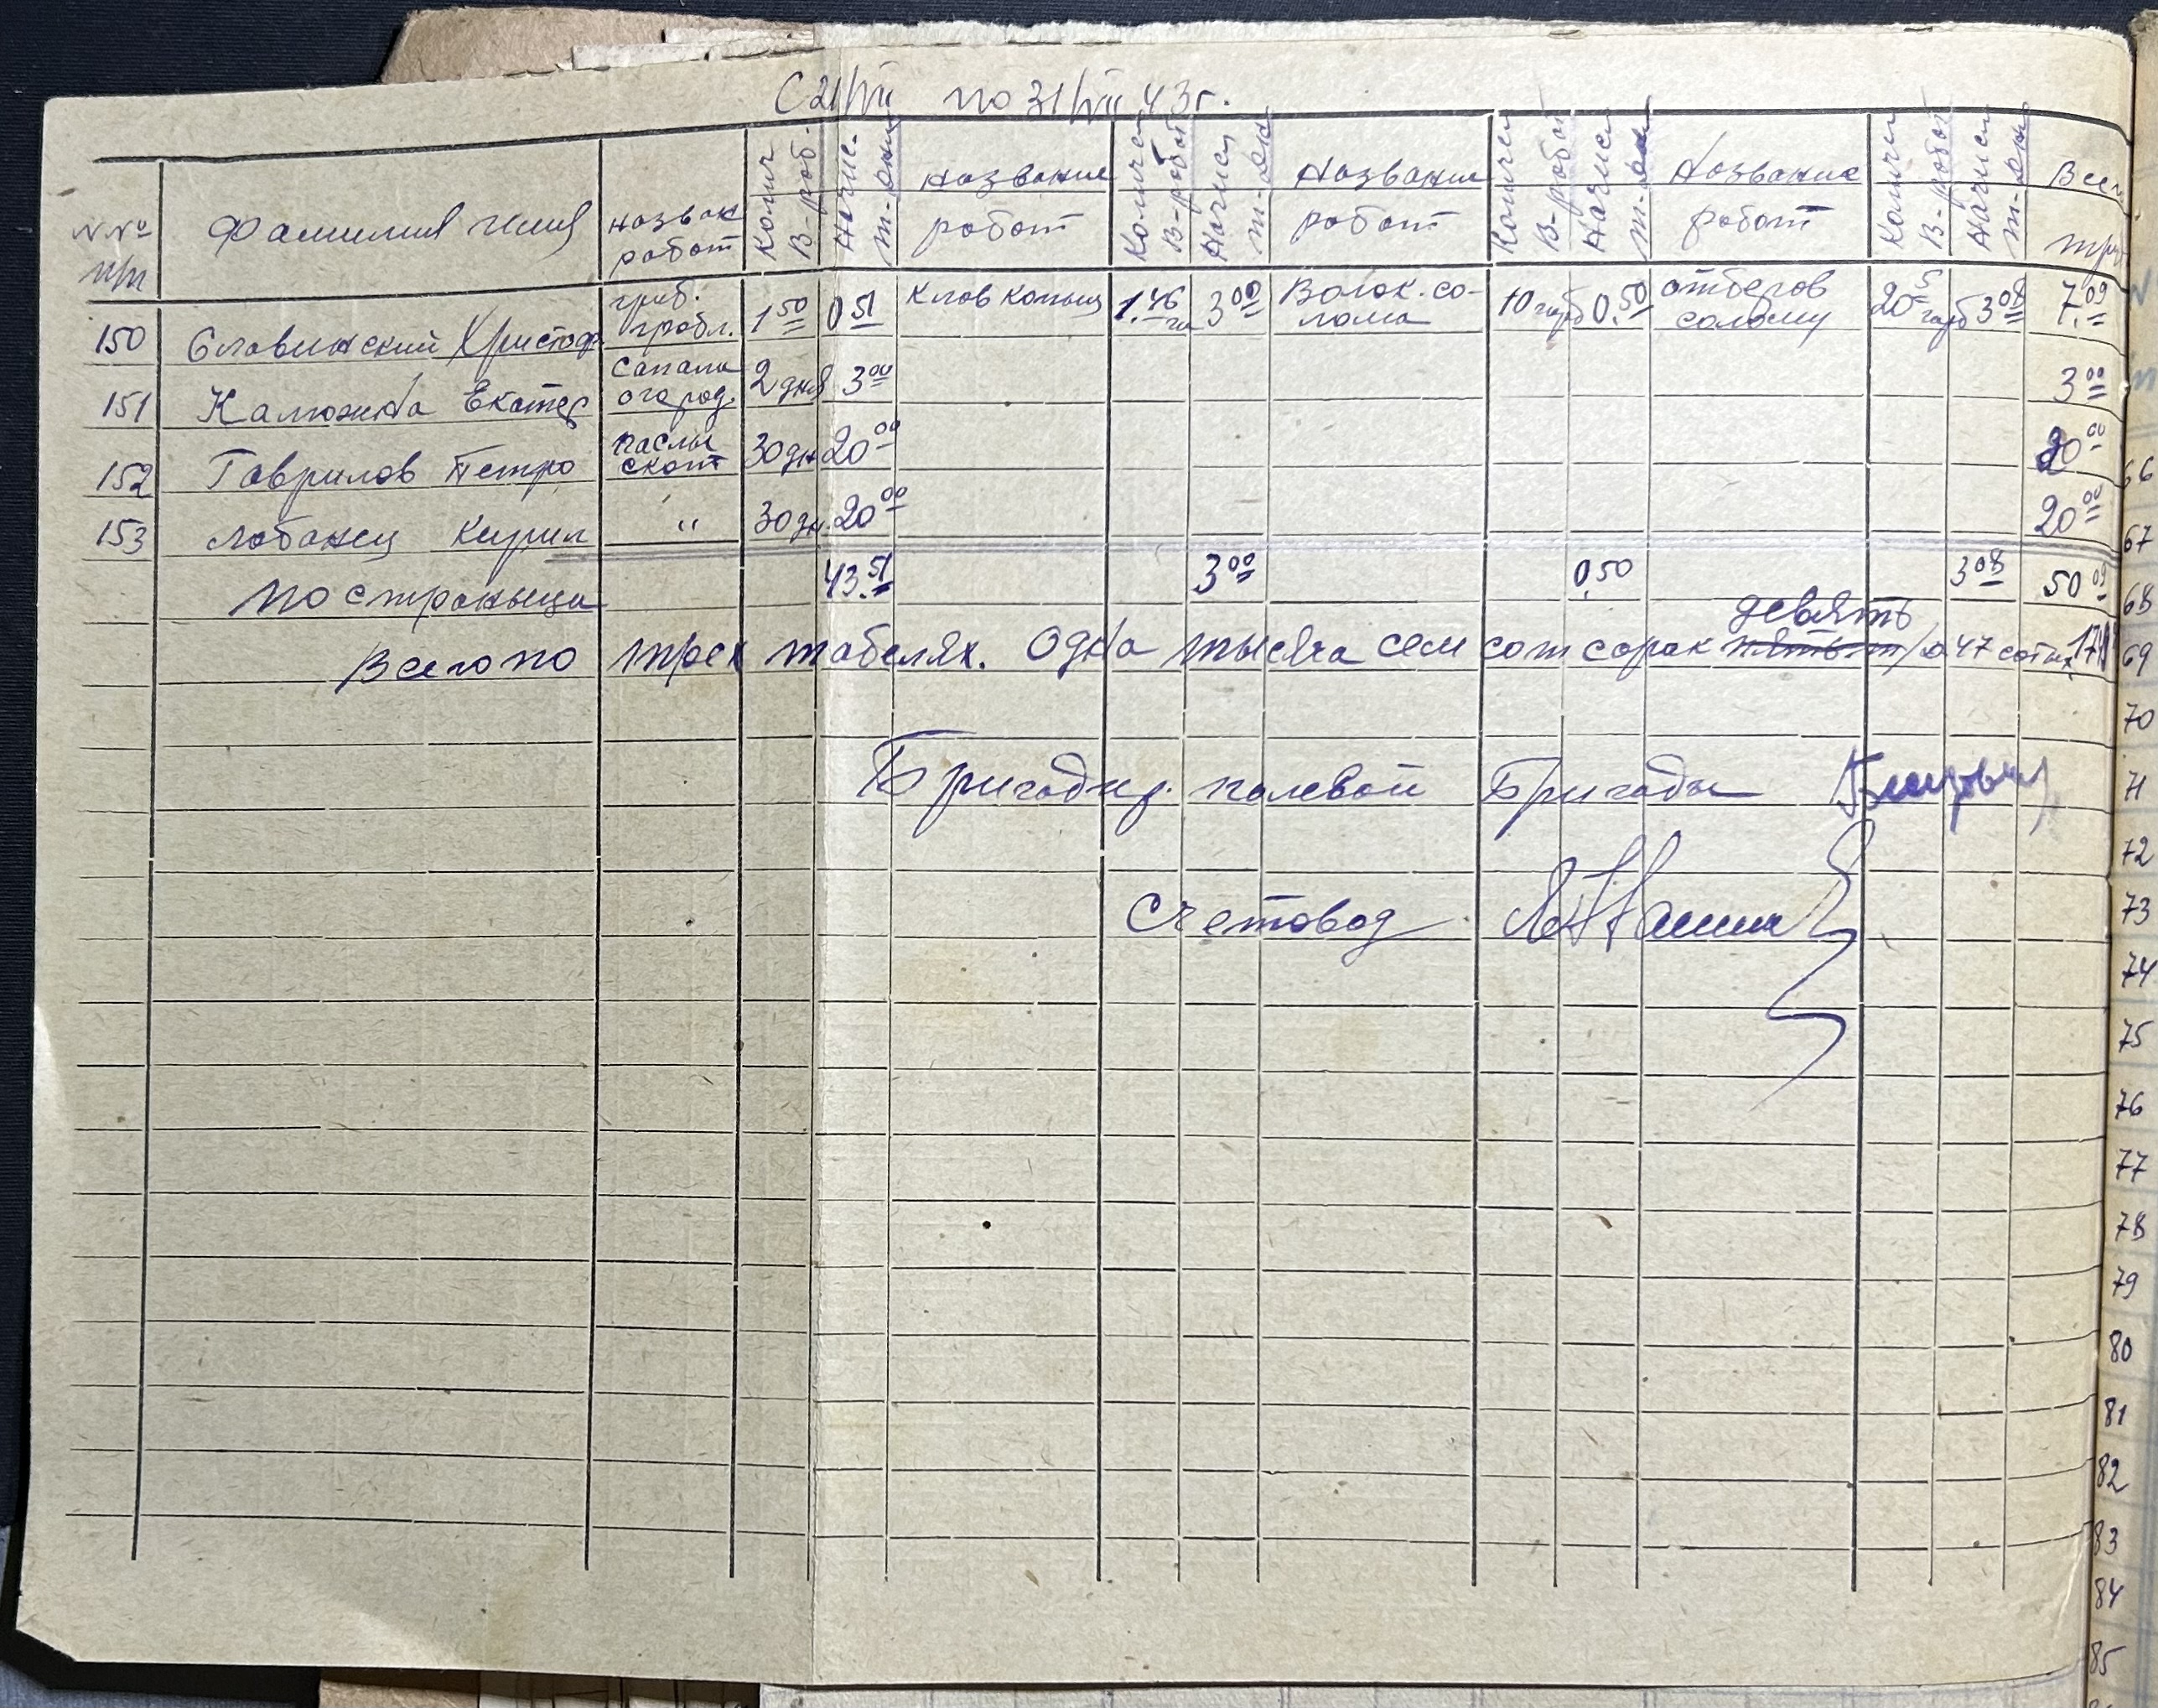 С 21/VII по 31/VII 43 г.
№№ п/п Фамилия и имя назван работ Колич В-работ Начис. т-дни название работ Количе В-работ Начисл т-дни Название работ Количе В-работ Начисл т-дни Название работ Количе В-работ Начисл т-дни Всего
150 Славинский Христоф граб. грабл. 1 50 0 51 Клав копыц 1.46 га 3 00 Волок. со-лома 10 гарб 0.50 отбегов солому 20 гарб 3 08 7.09
151 Калюжна Екатер сапали огород. 2 дня 3 00 3 00
152 Гаврилов Петро пасли скот 30 дн 20 00 20 00
153 Лобанец Кирил " 30 дн. 20 00 20 00
По страныци 43.51 3 00 0.50 3 08 50 09
девять
Всего по трех табелях. Одна тысяча сем сот сорок 47 сотых
Бригадир полевой Бригады
Счетовод
66
67
68
69
70
71
72
73
74
75
76
77
78
79
80
81
82
83
84
85